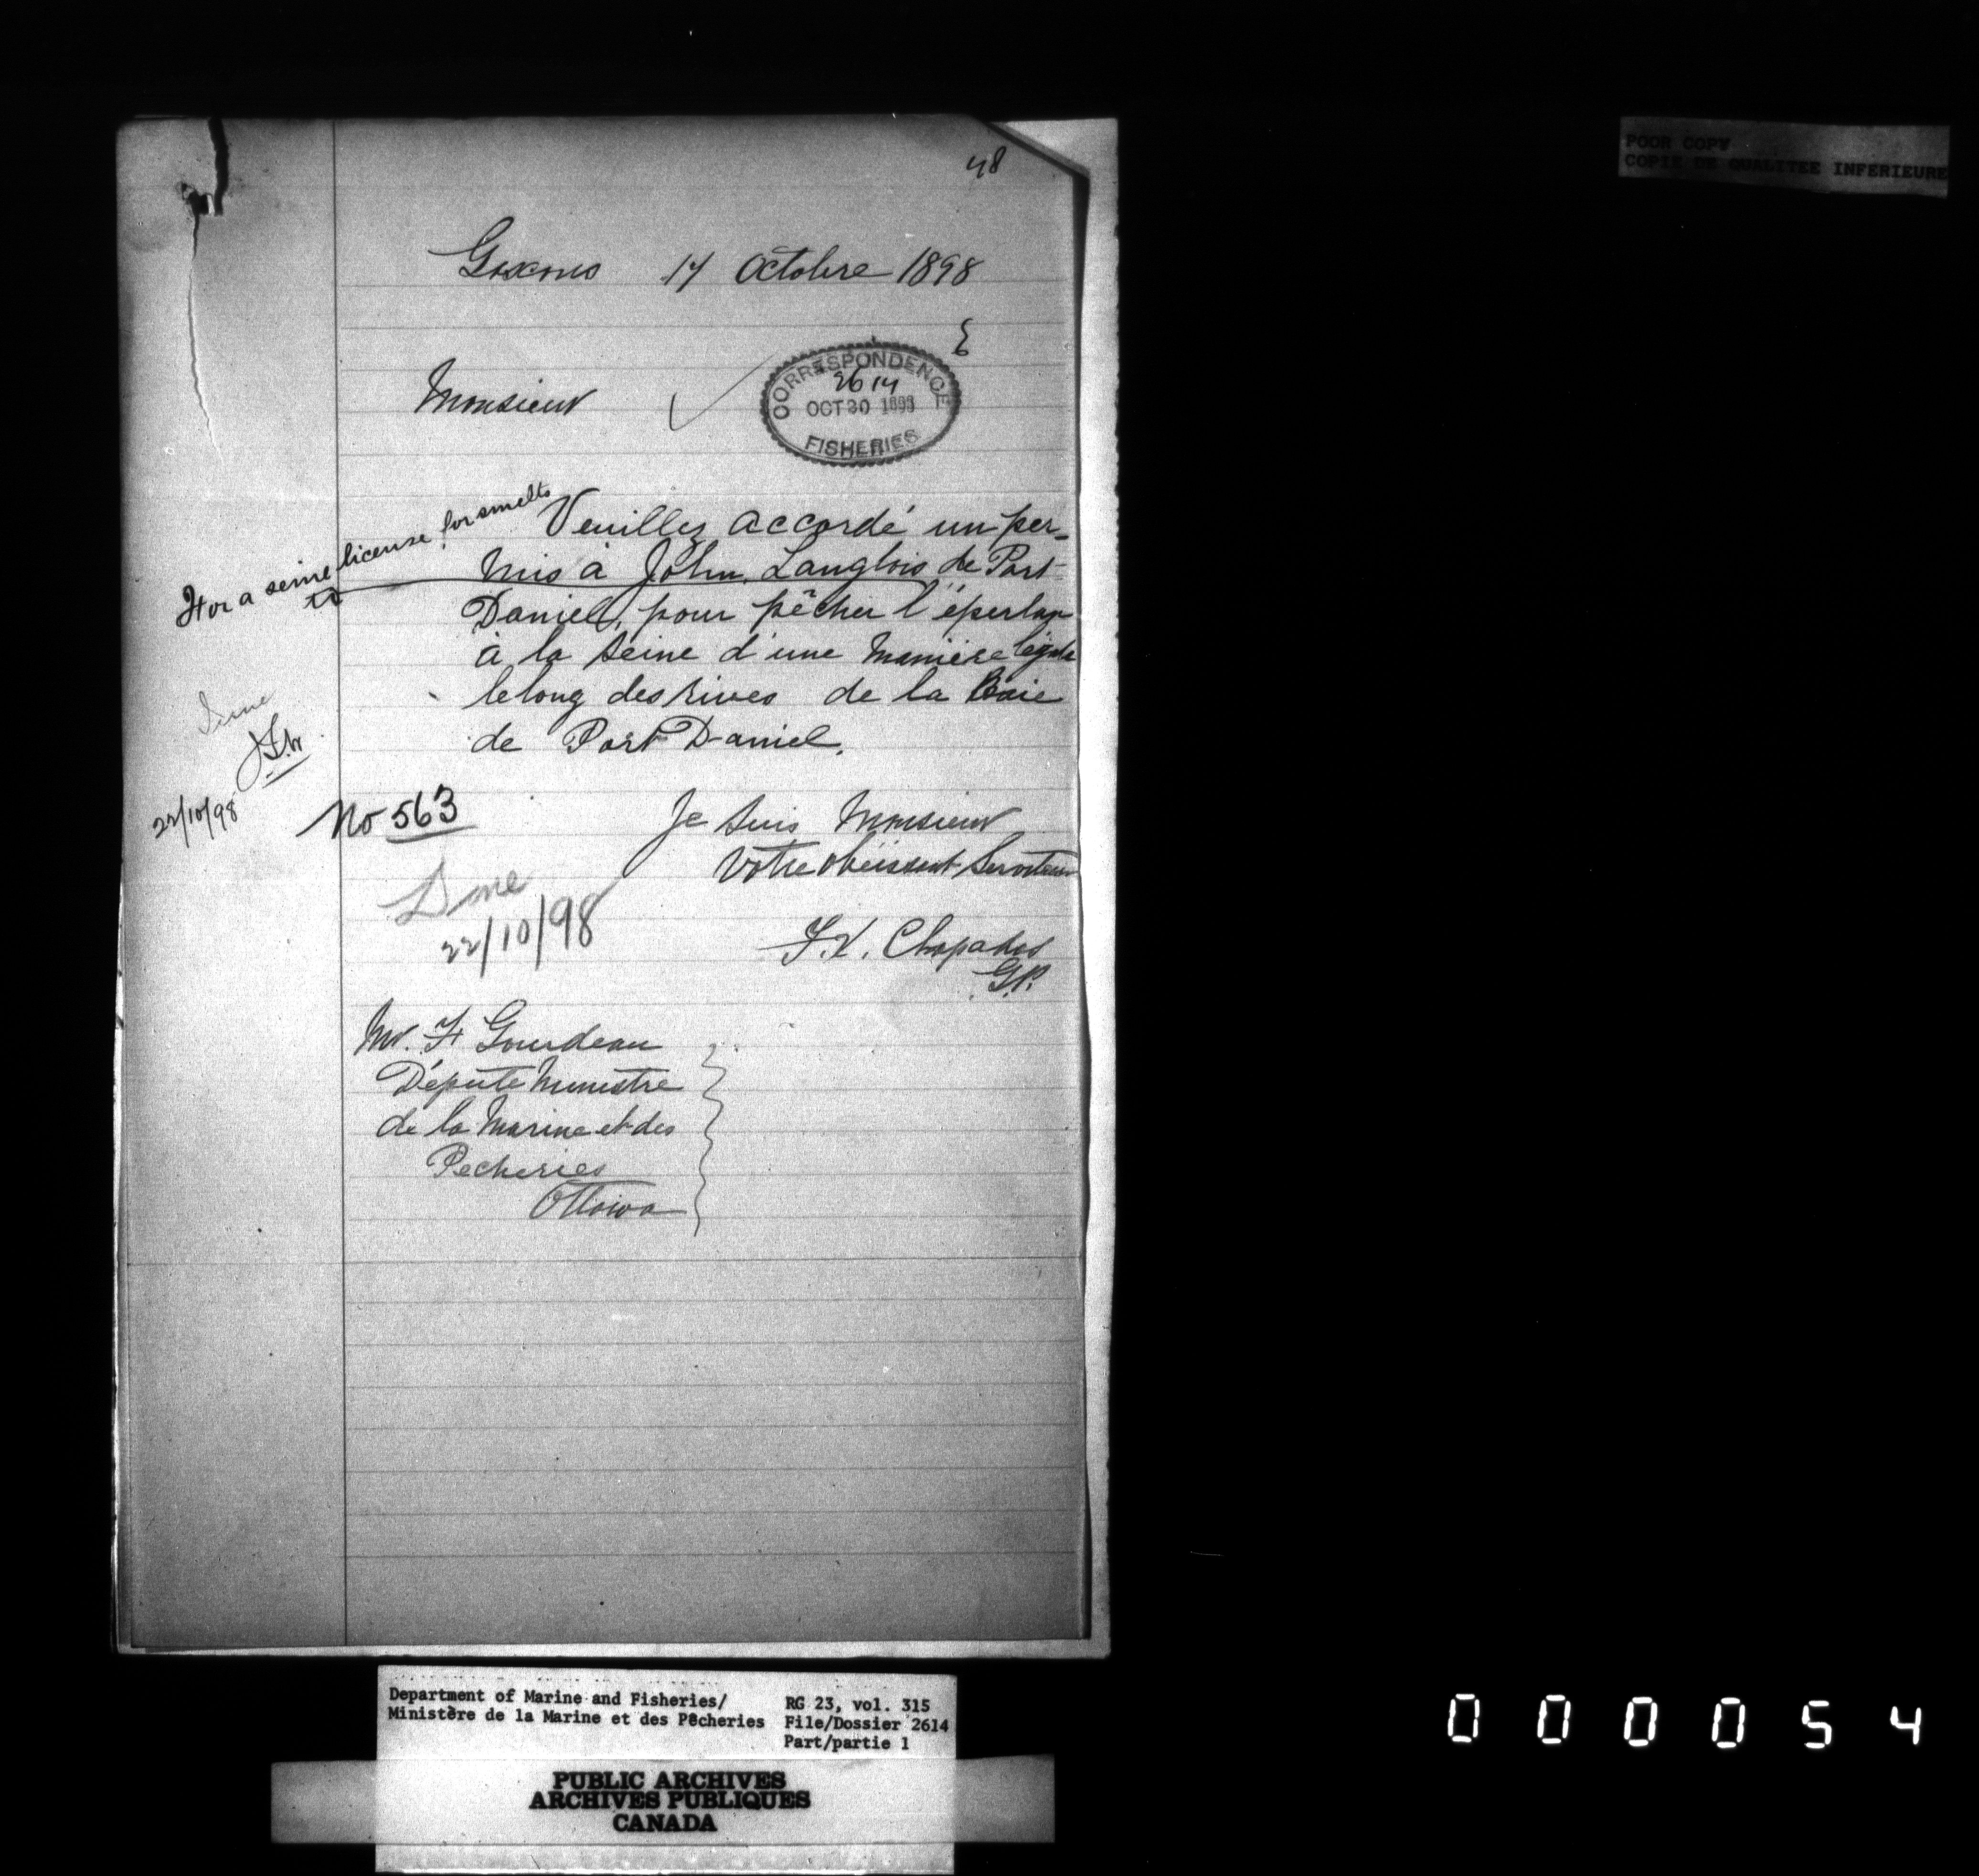 POOR COPY
COPIE DE QUALITEE INFERIEURE
48
Gascons 17 Octobre 1898
Monsieur
CORRESPONDENCE
2614
OCT 20 1898
FISHERIES
For a seine license for smelts
Veuillez accordé un per-
mis à John Langlois de Port
Daniel, pour pêcher l'éperlan
à la seine d'une manière légale
le long des rives de la Baie
de Port Daniel.
22/10/98
No 563
Je suis Monsieur
Votre obéissant Serviteur
Done
22/10/98
F.X. Chapados
G.P.
Mr. F Gourdeau
Député Ministre
de la Marine et des
Pecheries
Ottawa
Department of Marine and Fisheries/
Ministère de la Marine et des Pêcheries
RG 23, vol. 315
File/Dossier 2614
Part/partie 1
PUBLIC ARCHIVES
ARCHIVES PUBLIQUES
CANADA
000054